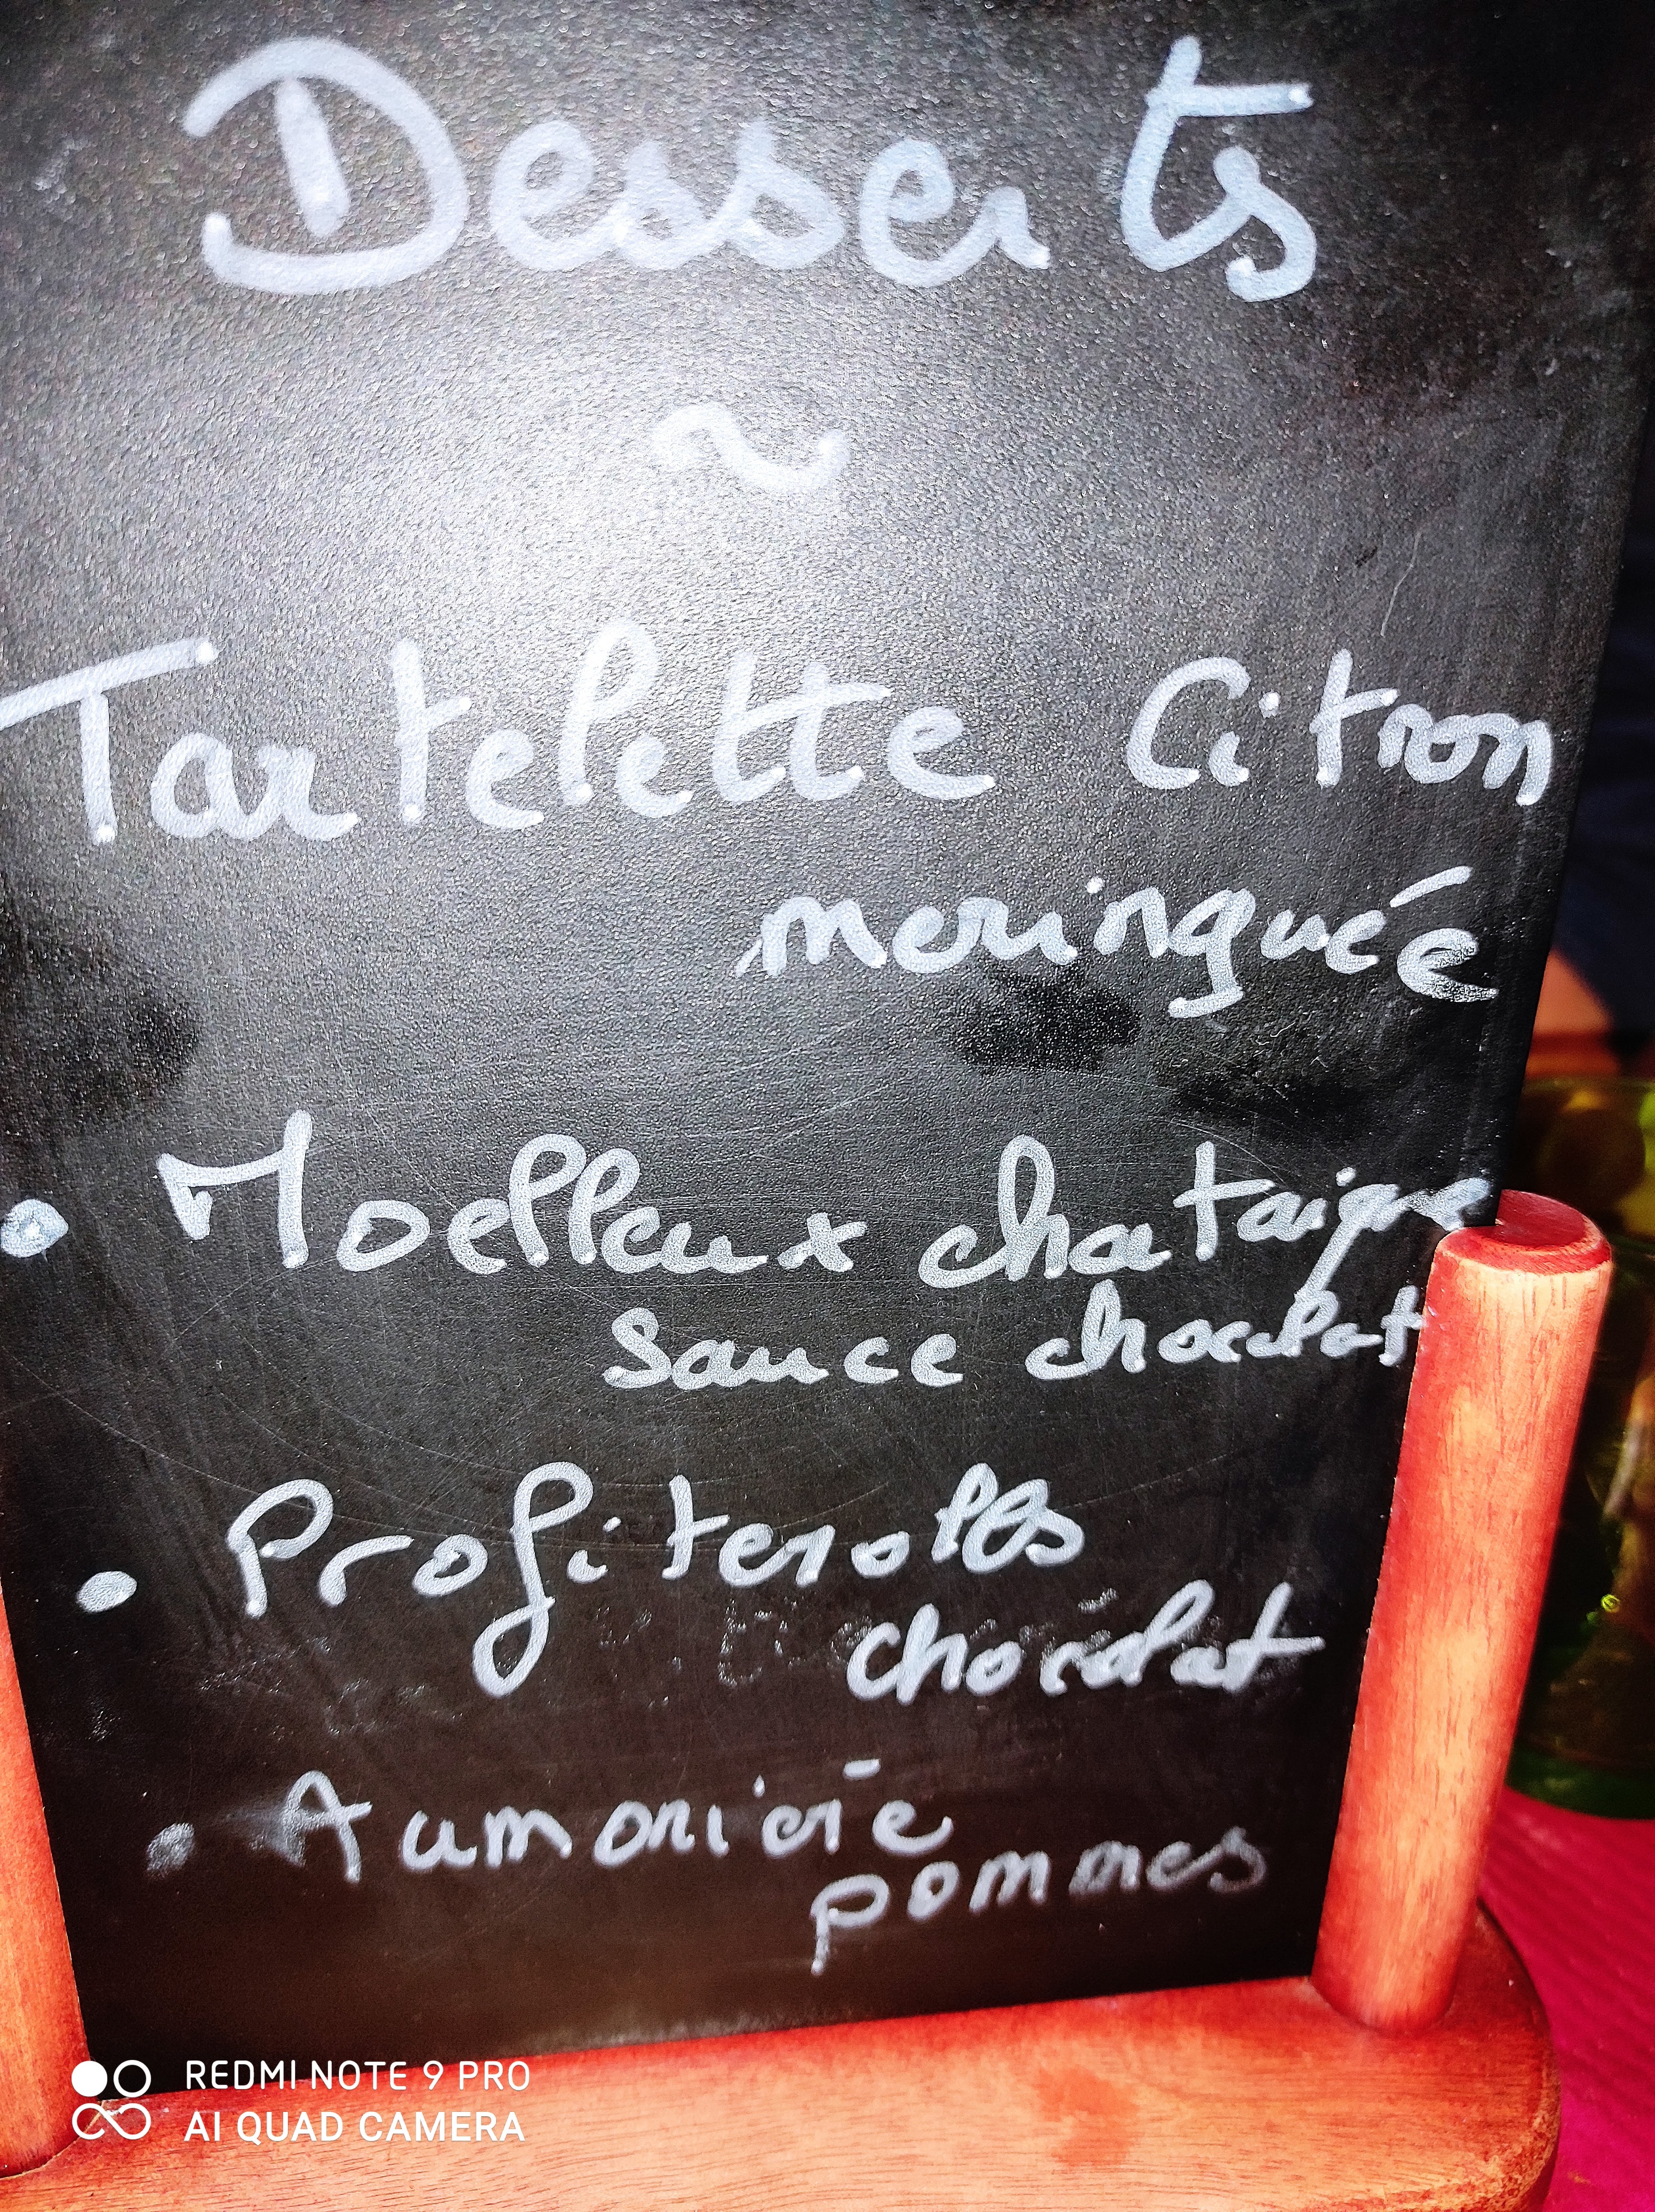 Desserts
~
Tartelette Citron
meringuée
• Moelleux chataigne
sauce chocolat
• Profiterolles
chocolat
• Aumonière
pommes
REDMI NOTE 9 PRO
AI QUAD CAMERA